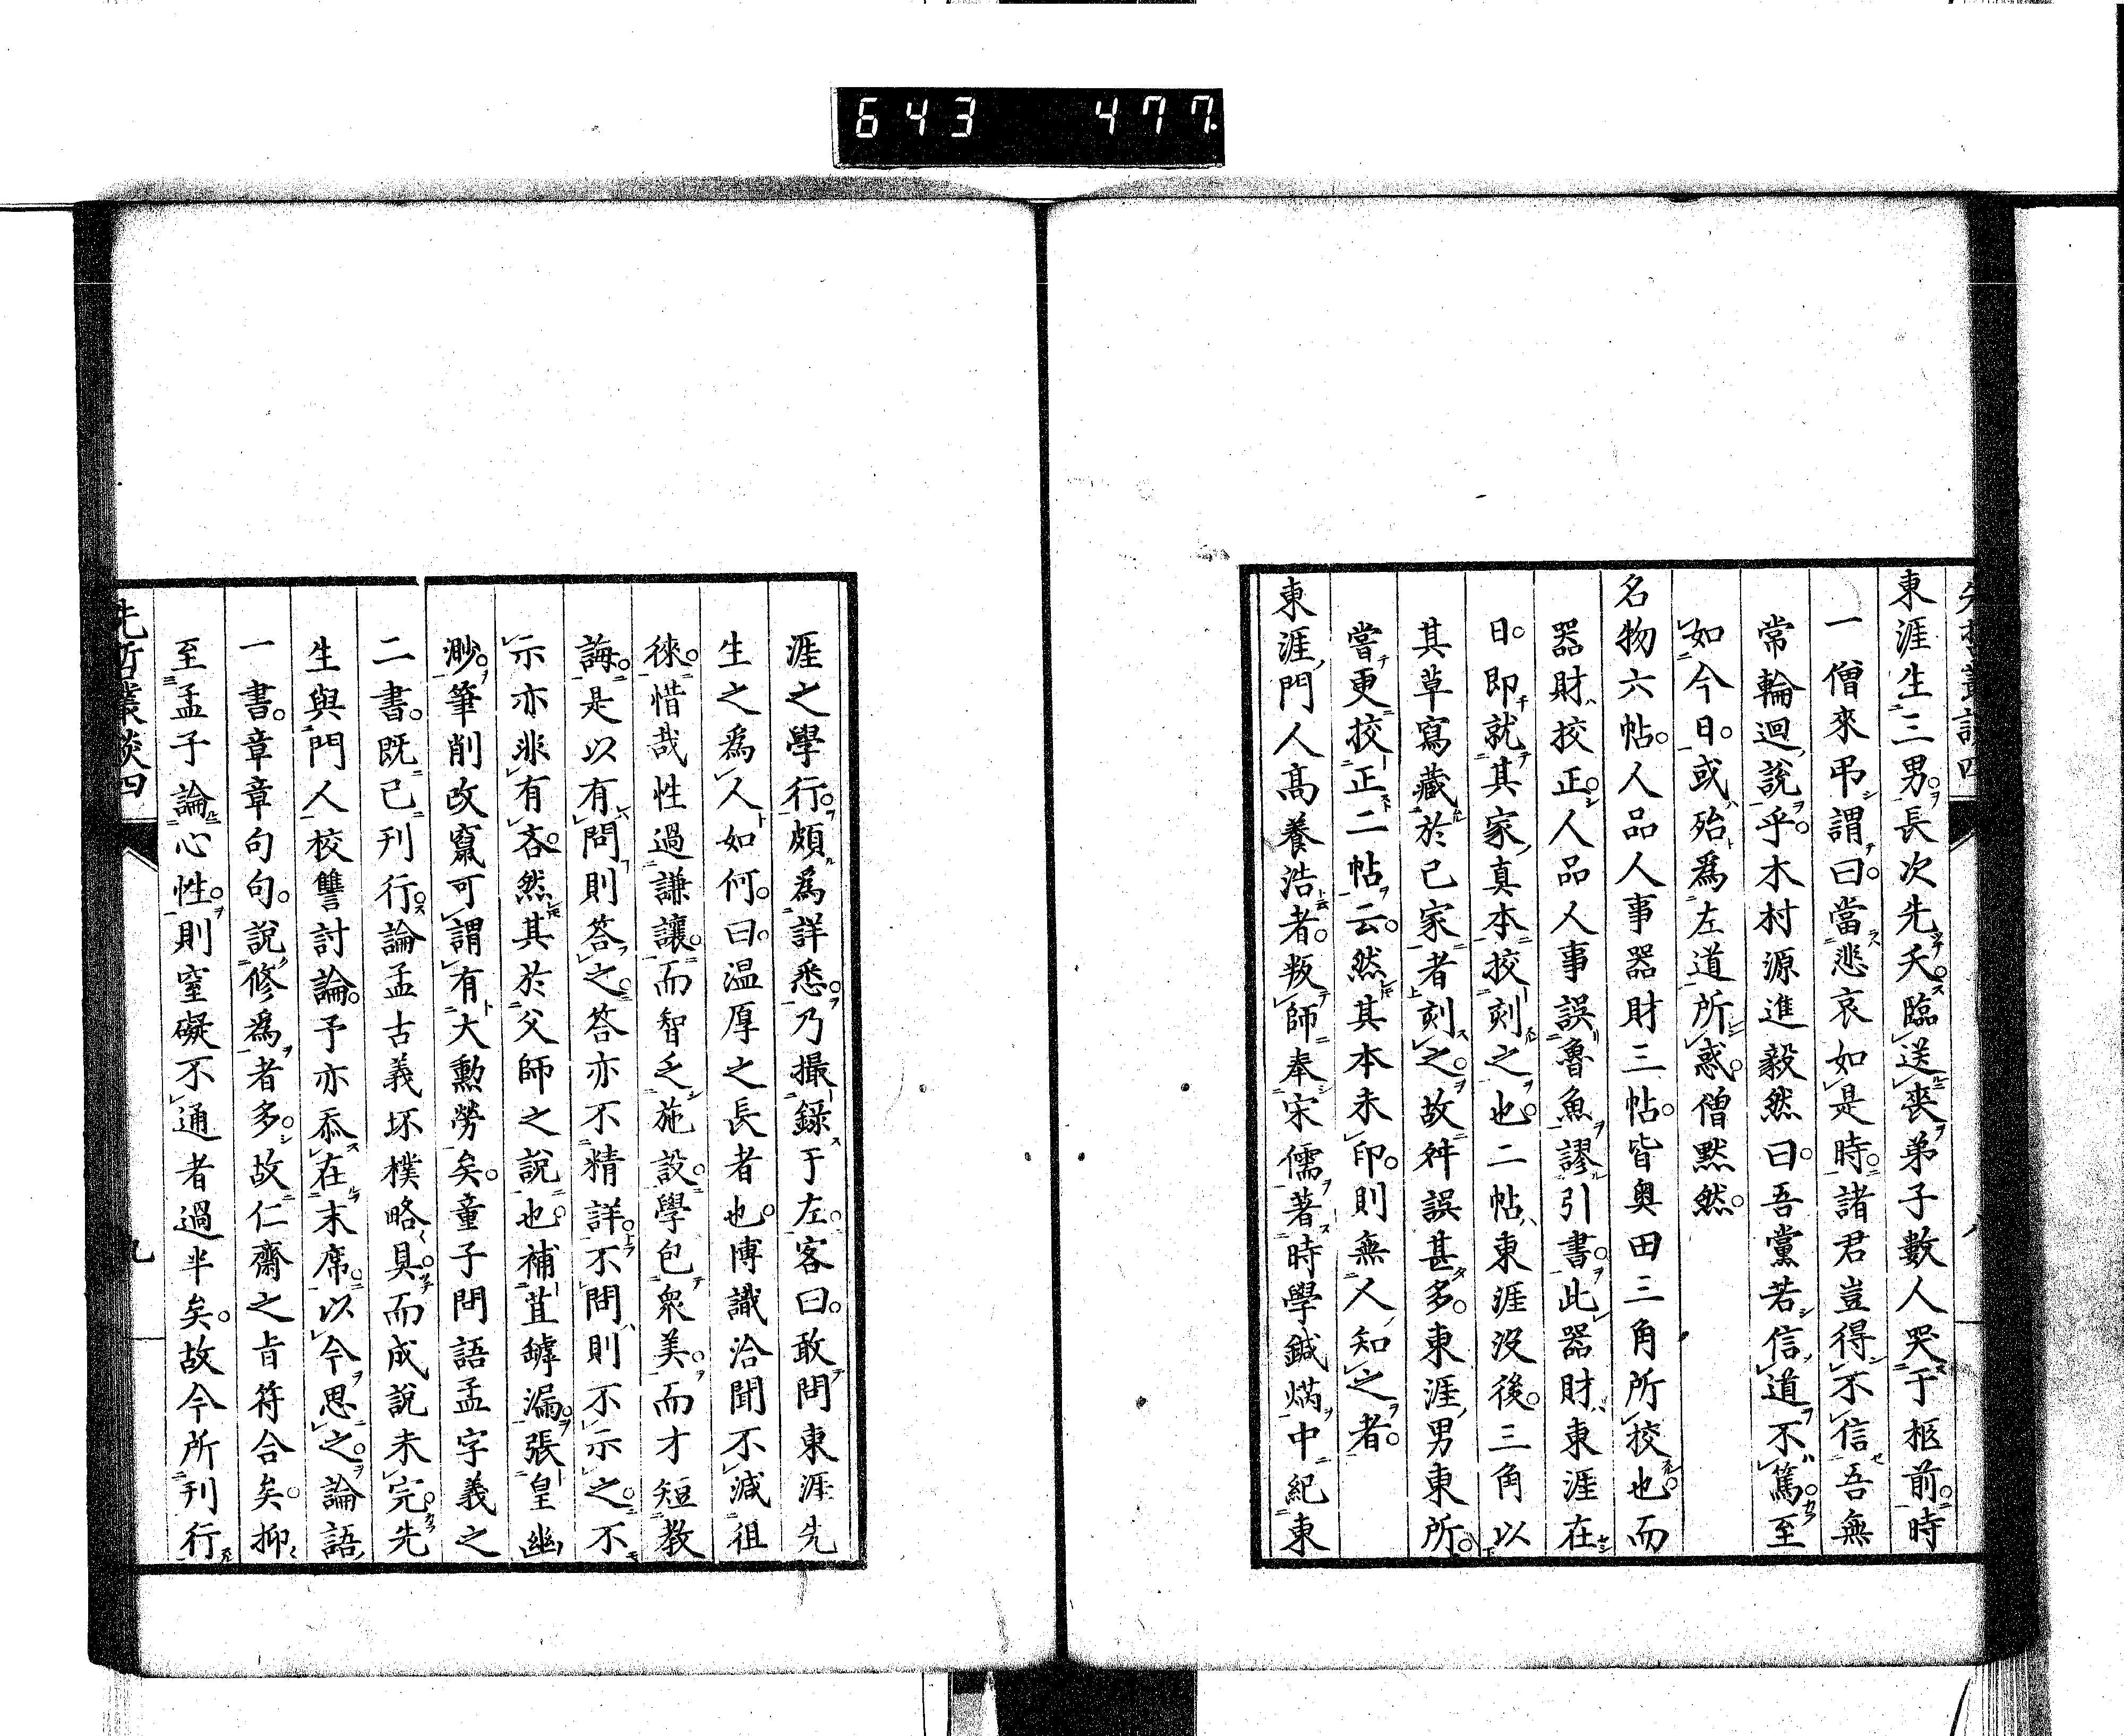 643 477
東涯生三男。長次先夭。臨送喪弟子數人哭于柩前。時
一僧來弔謂曰。當悲哀如是時。諸君豈得不信吾無
常輪迴說乎。木村源進毅然曰。吾黨若信道不篤。至
如今日。或殆爲左道所惑。僧默然。
名物六帖。人品人事器財三帖。皆奥田三角所挍也。而
器財挍正。人品人事誤魯魚謬引書。此器財東涯在
日。即就其家真本挍刻之也。二帖東涯沒後。三角以
其草寫藏於己家者刻之。故舛誤甚多。東涯男東所。
嘗更挍正二帖云。然其本未印。則無人知之者。
東涯門人高養浩者。叛師奉宋儒著時學鍼焫中紀東
涯之學行。頗爲詳悉。乃撮録于左。客曰。敢問東涯先
生之爲人如何。曰。温厚之長者也。博識洽聞不減徂
徠。惜哉性過謙讓。而智乏施設。學包衆美。而才短教
誨。是以有問則答之。答亦不精詳。不問則不示之。不
示亦非有吝。然其於父師之說也。補苴罅漏。張皇幽
渺。筆削改竄可謂有大勳勞矣。童子問語孟字義之
二書。既已刊行。論孟古義坏樸略具。而成說未完。先
生與門人校讐討論。予亦忝在末席。以今思之。論語
一書。章章句句。說修爲者多。故仁齋之旨符合矣。抑
至孟子論心性。則窒礙不通者過半矣。故今所刊行
先哲叢談四
九